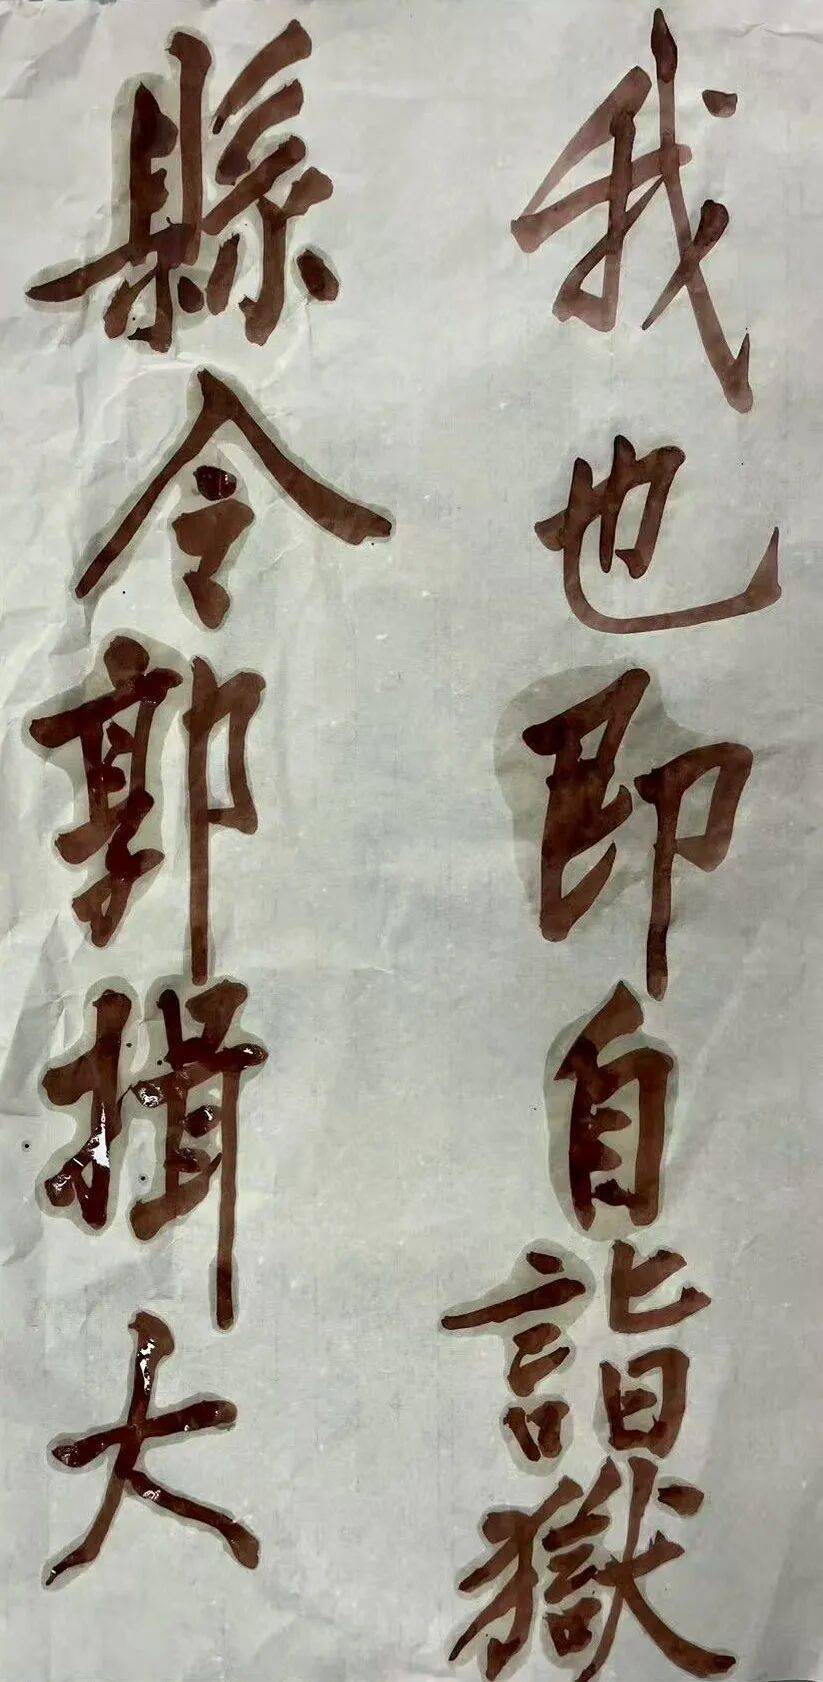 我也即自詣獄
縣令郭揖大